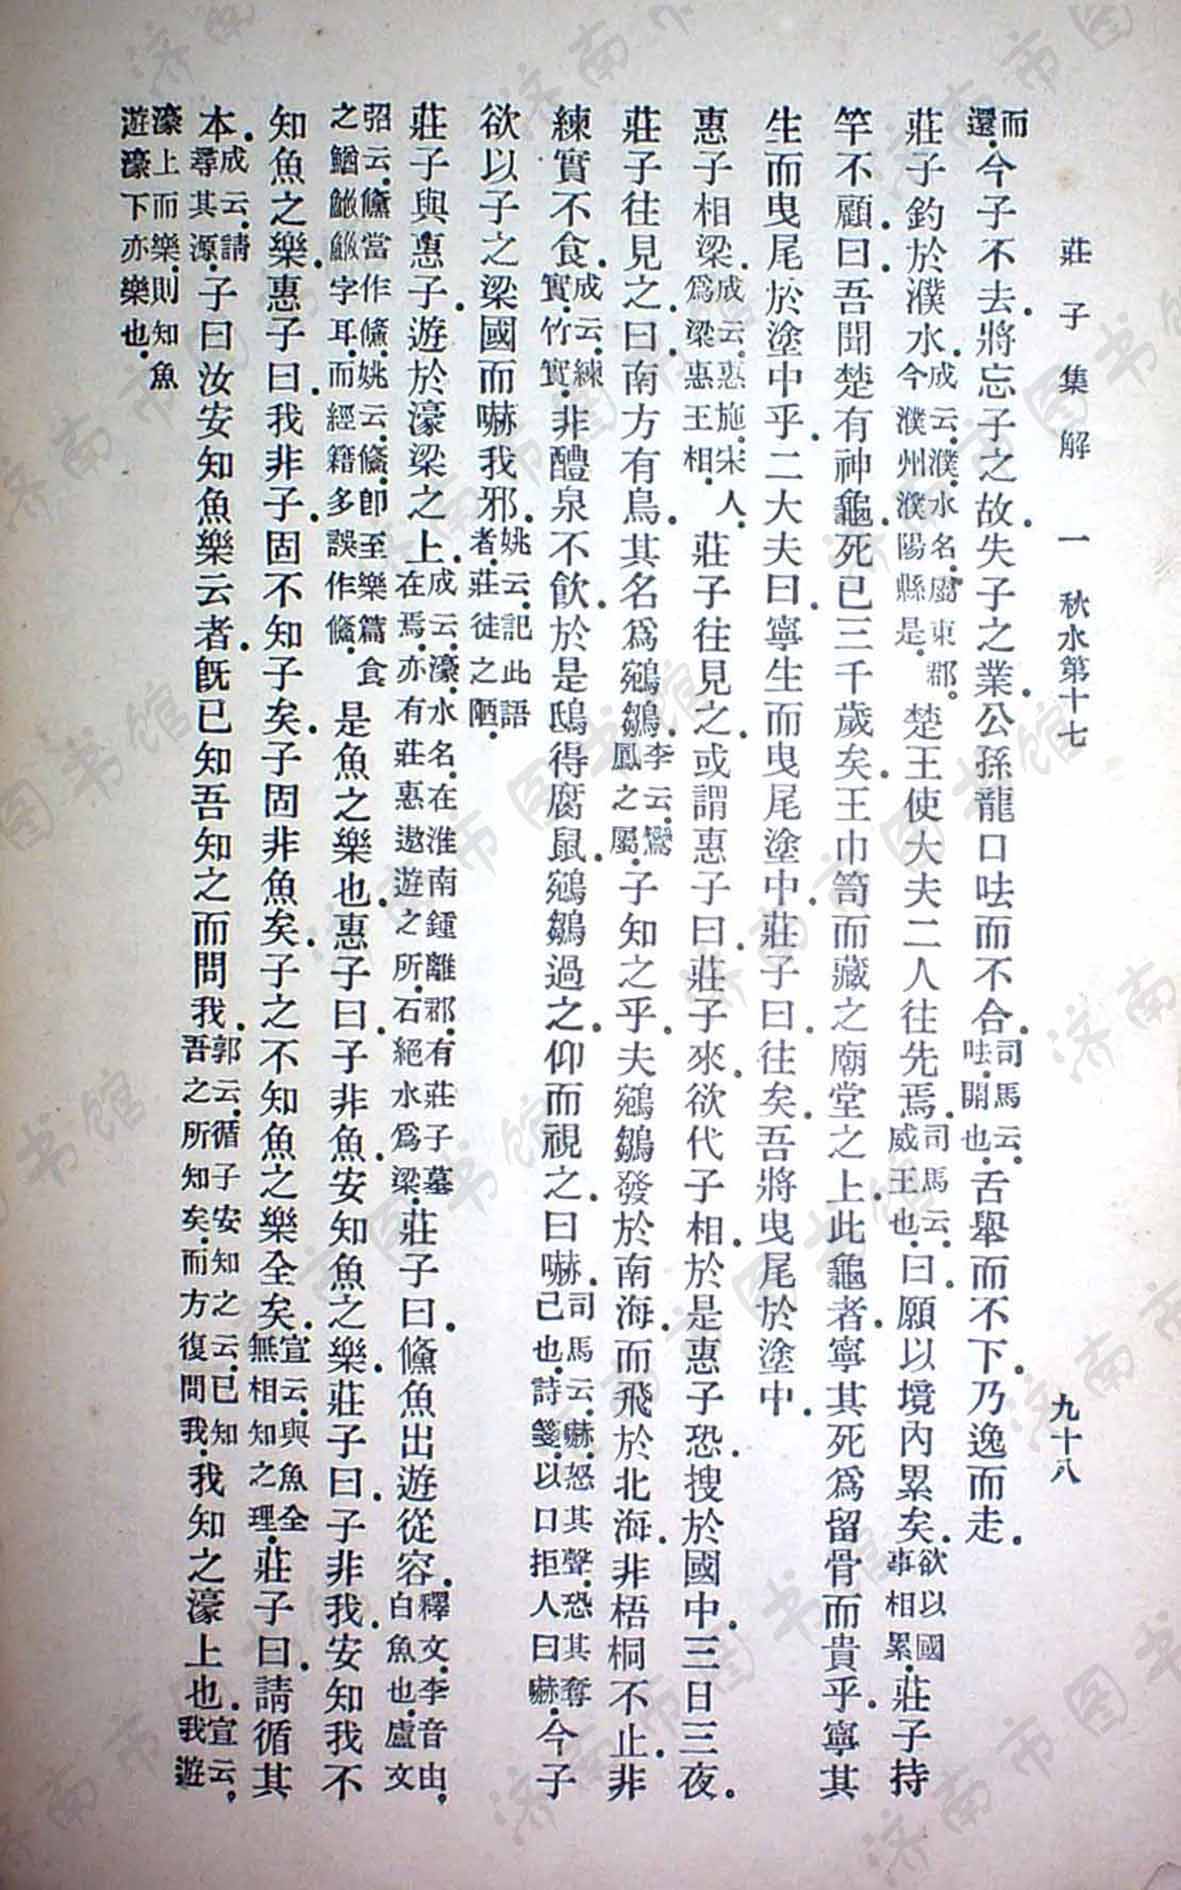 莊子集解　一　秋水第十七　九十八
而還。今子不去。將忘子之故。失子之業。公孫龍口呿而不合。司馬云。呿。開也。舌舉而不下。乃逸而走。
莊子釣於濮水。成云。濮。水名。屬東郡。今濮州濮陽縣是。楚王使大夫二人往先焉。司馬云。威王也。曰。願以境內累矣。欲以國事相累。莊子持
竿不顧。曰。吾聞楚有神龜。死已三千歲矣。王巾笥而藏之廟堂之上。此龜者。寧其死爲留骨而貴乎。寧其
生而曳尾於塗中乎。二大夫曰。寧生而曳尾塗中。莊子曰。往矣。吾將曳尾於塗中。
惠子相梁。成云。惠施。宋人。爲梁惠王相。莊子往見之。或謂惠子曰。莊子來。欲代子相。於是惠子恐。搜於國中。三日三夜。
莊子往見之。曰。南方有鳥。其名爲鵷鶵。李云。鸞鳳之屬。子知之乎。夫鵷鶵發於南海。而飛於北海。非梧桐不止。非
練實不食。成云。練實。竹實。非醴泉不飲。於是鴟得腐鼠。鵷鶵過之。仰而視之。曰嚇。司馬云。嚇。怒其聲。恐其奪己也。詩箋。以口拒人曰嚇。今子
欲以子之梁國而嚇我邪。姚云。記此語者。莊徒之陋。
莊子與惠子。遊於濠梁之上。成云。濠。水名。在淮南鍾離郡。有莊子墓在焉。亦有莊惠遨遊之所。石絕水爲梁。莊子曰。儵魚出遊從容。釋文。李音由。白魚也。盧文
弨云。儵當作鯈。姚云。鯈。卽至樂篇食之鰌鮍鮍字耳。而經籍多誤作鯈。是魚之樂也。惠子曰。子非魚。安知魚之樂。莊子曰。子非我。安知我不
知魚之樂。惠子曰。我非子。固不知子矣。子固非魚矣。子之不知魚之樂全矣。宣云。與魚全無相知之理。莊子曰。請循其
本。成云。請尋其源。子曰汝安知魚樂云者。旣已知吾知之而問我。郭云。循子安知之云。已知吾之所知矣。而方復問我。我知之濠上也。宣云。我遊
濠上而樂。則知魚遊濠下亦樂也。